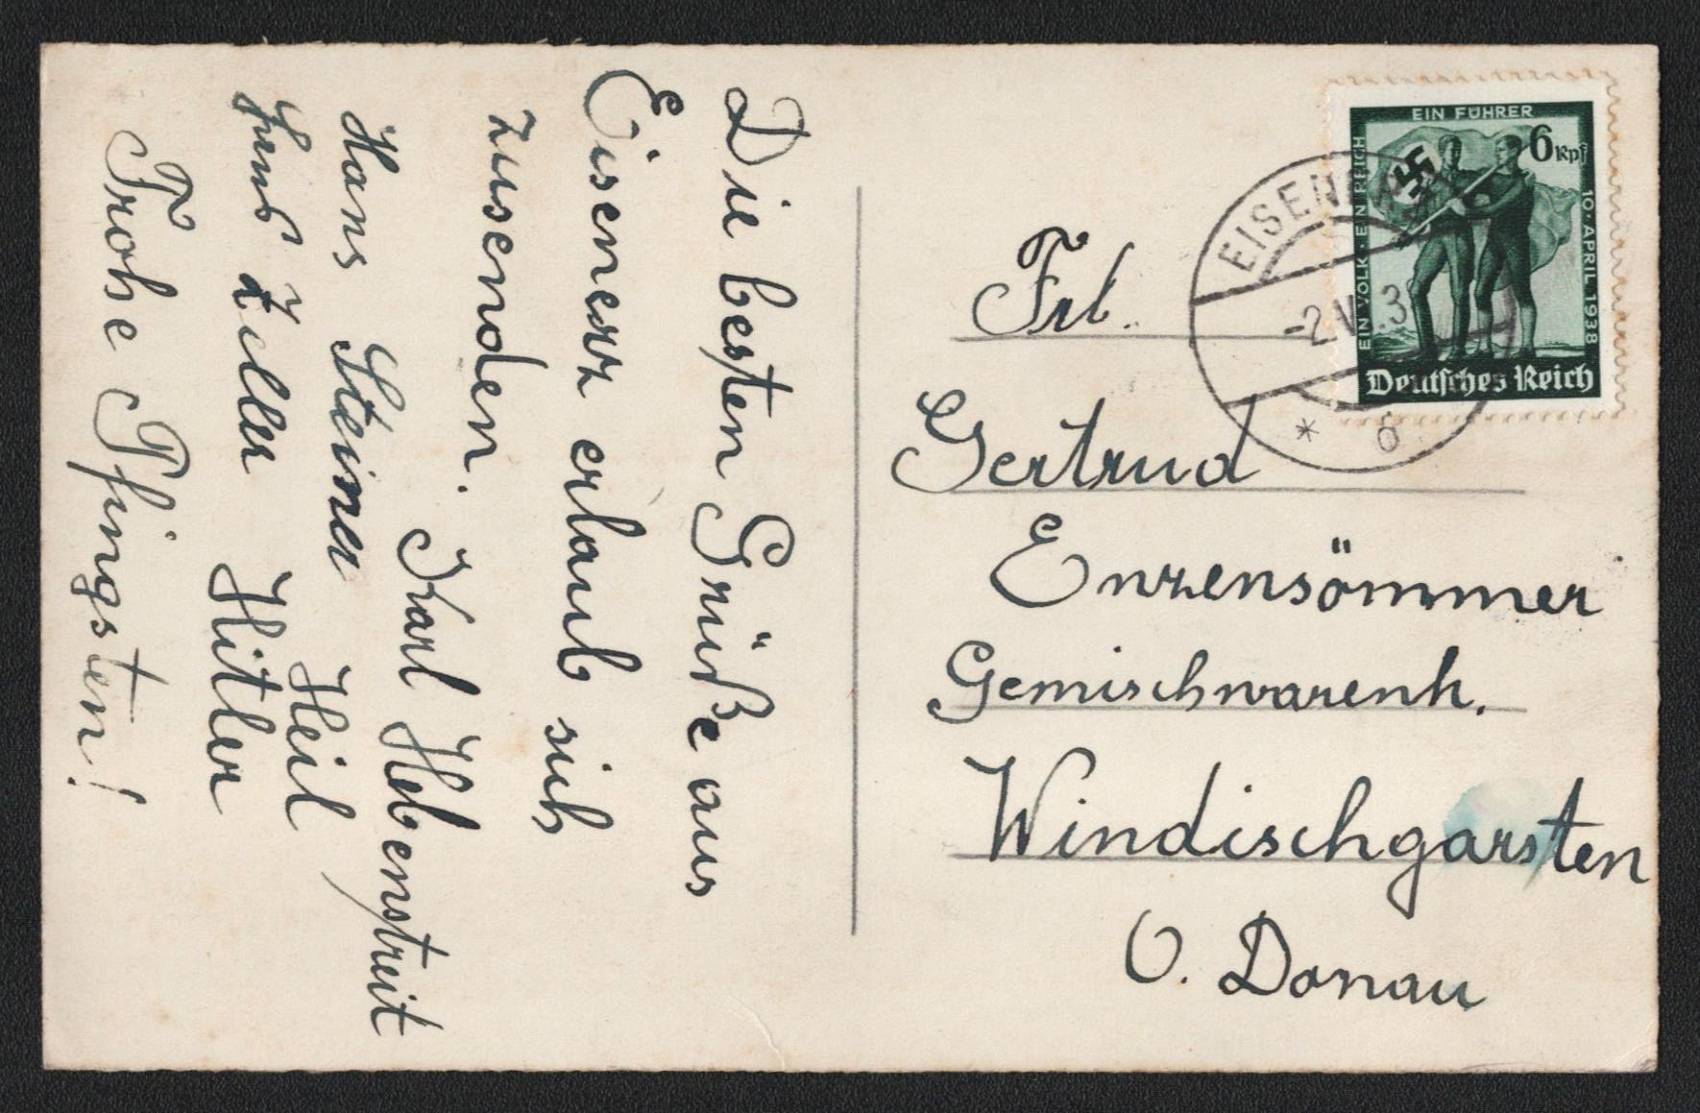 Die besten Grüße aus
Eisenerz erlaub sich
zusenden.
Karl Hebenstreit
Hans Steiner
Zeller
Heil
Hitler
Frohe Pfingsten!
EIN FÜHRER
EIN VOLK · EIN REICH
6 Rpf
10. APRIL 1938
Deutsches Reich
-2.
* ö
Frl.
Gertrud
Enzensömmer
Gemischwarenh.
Windischgarsten
O. Donau